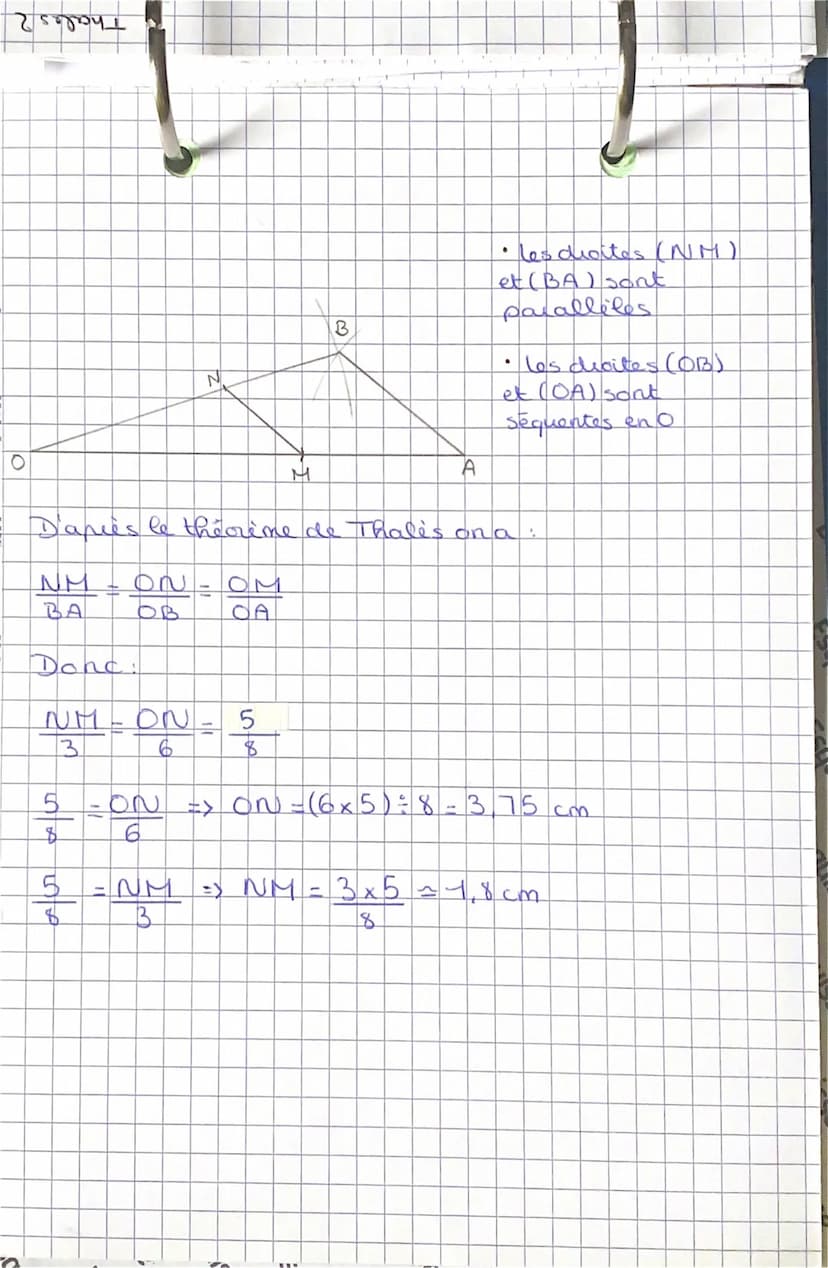 Thales 2
• les droites (NM)
et (BA) sont
parallèles
• les droites (OB)
et (OA) sont
séquentes en O
B
N
O
M
A
D'après le théorème de Thalès on a :
NM/BA = ON/OB = OM/OA
Donc :
NM/3 = ON/6 = 5/8
5/8 = ON/6 => ON = (6 x 5) ÷ 8 = 3,75 cm
5/8 = NM/3 => NM = 3 x 5/8 ≃ 1,8 cm